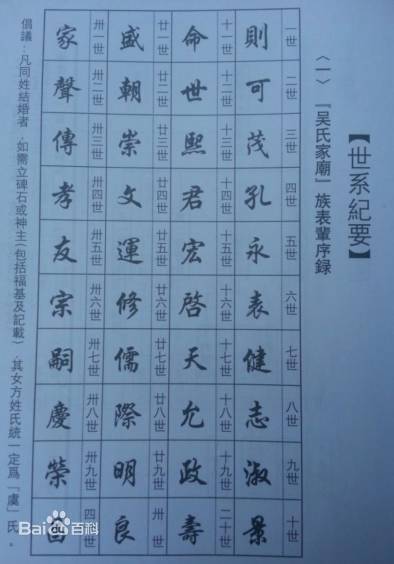 【世系紀要】
〈一〉『吴氏家廟』族表輩序録
一世 二世 三世 四世 五世 六世 七世 八世 九世 十世
則 可 茂 孔 永 表 健 志 淑 景
十一世 十二世 十三世 十四世 十五世 十六世 十七世 十八世 十九世 二十世
命 世 熙 君 宏 啓 天 允 政 壽
廿一世 廿二世 廿三世 廿四世 廿五世 廿六世 廿七世 廿八世 廿九世 卅世
盛 朝 崇 文 運 修 儒 際 明 良
卅一世 卅二世 卅三世 卅四世 卅五世 卅六世 卅七世 卅八世 卅九世 四十世
家 聲 傳 孝 友 宗 嗣 慶 榮
倡議：凡同姓結婚者，如需立碑石或神主（包括福基及記載），其女方姓氏統一定爲「虞」氏。
Bai百科